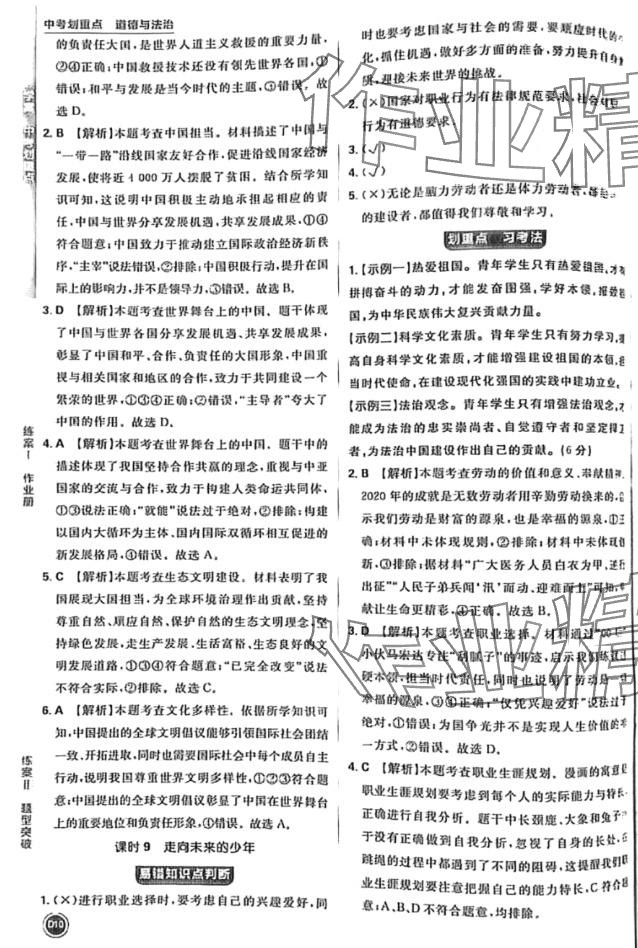 中考划重点 道德与法治
的负责任大国,是世界人道主义救援的重要力量,
②④正确;中国救援技术还没有领先世界各国,①
错误;和平与发展是当今时代的主题,③错误。故
选D。
2. B 【解析】本题考查中国担当。材料描述了中国与
“一带一路”沿线国家友好合作,促进沿线国家经济
发展,使将近4 000万人摆脱了贫困。结合所学知
识可知,这说明中国积极主动地承担起相应的责
任,中国与世界分享发展机遇,共享发展成果,①④
符合题意;中国致力于推动建立国际政治经济新秩
序,“主宰”说法错误,②排除;中国积极行动,提升在国
际上的影响力,并不是领导力,③错误。故选B。
3. D 【解析】本题考查世界舞台上的中国。题干体现
了中国与世界各国分享发展机遇、共享发展成果,
彰显了中国和平、合作、负责任的大国形象,中国重
视与相关国家和地区的合作,致力于建设一个
繁荣的世界,D正确;“主导者”夸大了
中国的作用。故选D。
4. A 【解析】本题考查世界舞台上的中国。题干中的
描述体现了我国坚持合作共赢的理念,重视与中亚
国家的交流与合作,致力于构建人类命运共同体,
①②③正确;“就能”说法过于绝对,应
以国内大循环为主体、国内国际双循环相互促进的
新发展格局,④错误。故选A。
5. C 【解析】本题考查生态文明建设。材料表明了我
国展现大国担当,为全球环境治理作出贡献,坚持
尊重自然、顺应自然、保护自然的生态文明理念,坚
持绿色发展,走生产发展、生活富裕、生态良好的文
明发展道路,①③④符合题意;“已完全改变”说法
不符合实际,②排除。故选C。
6. A 【解析】本题考查文化多样性。依据所学知识可
知,中国提出的全球文明倡议能够引领国际社会团结
一致、开拓进取,同时也需要国际社会中每个成员自主
行动,我国尊重世界文明多样性,①②③符合题
意;中国提出的全球文明倡议彰显了中国在世界舞台
上的重要地位和负责任形象,④排除。故选A。
课时9 走向未来的少年
易错知识点判断
1. (×)进行职业选择时,要考虑自己的兴趣爱好,同
时也要考虑国家与社会的需要。
抓住机遇,做好多方面的准备,努力
迎接未来世界的挑战。
2. (×)国家对职业行为有法律规范要求,社会对职
业有道德要求。
3. (√)
4. (√)
5. (×)无论是脑力劳动者还是体力劳动者,都
的建设者,都值得我们尊敬和学习。
划重点 习考法
1. [示例一]热爱祖国。青年学生只有热爱祖国,才
拼搏奋斗的动力,才能发奋图强,学好本领,报效祖
国,为中华民族伟大复兴贡献力量。
[示例二]科学文化素质。青年学生只有努力学习,提
高自身科学文化素质,才能增强建设祖国的本领,担
当时代使命,在建设现代化强国的实践中建功立业。
[示例三]法治观念。青年学生只有增强法治观念,才
能成为法治的忠实崇尚者、自觉遵守者和坚定捍
为法治中国建设作出自己的贡献。(6分)
2. B 【解析】本题考查劳动的价值和意义、奉献精神。
2020年的成就是无数劳动者用辛勤劳动换来的,启
示我们劳动是财富的源泉,也是幸福的源泉,①④
正确;材料中未体现规则,②排除;
材料中未体现,③排除;据材料“广大医务人员白衣
出征”“人民子弟兵闻‘汛’而动、迎难而上”可知,
出让生命更精彩,④正确。故选B。
3. D 【解析】本题考查职业选择。材料通过“
小伙马宏达专注‘刮腻子’的事迹,启示我们
理想,担当时代责任,同时,也说明劳动是
幸福的源泉,③④正确;“仅凭兴趣爱好”说法过于
绝对,①错误;为国争光并不是实现人生价值的
径,②错误。故选D。
4. C 【解析】本题考查职业生涯规划。漫画的寓意是
我们职业生涯规划要考虑到每个人的实际能力与特点,
正确进行自我分析。题干中长颈鹿、大象和兔子
当初在进行自我分析时,忽视了自身的长处,在
跳绳的过程中出现了不同的阻碍,这提醒我们
职业生涯规划要考虑自己的能力特长,C符合题
意;A、B、D不符合题意,均排除。故选C。
练案Ⅰ 作业册
练案Ⅱ 题型突破
D10
作业精
作业精